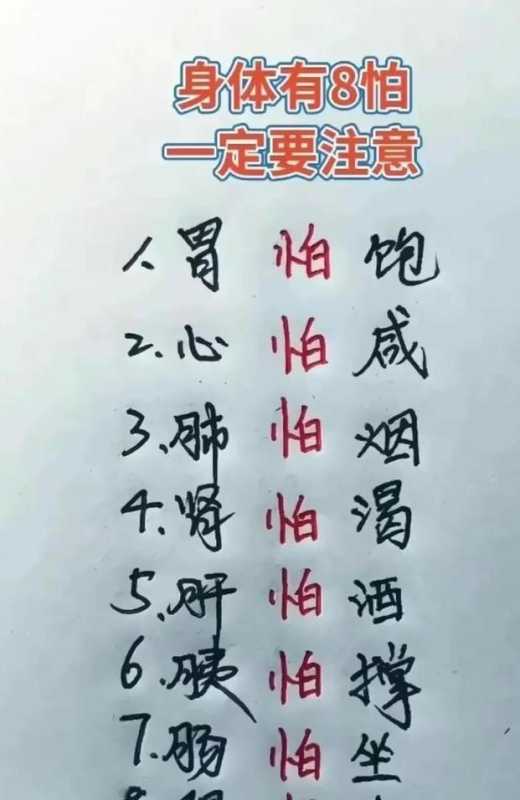 身体有8怕
一定要注意
1、胃 怕 饱
2、心 怕 咸
3、肺 怕 烟
4、肾 怕 渴
5、肝 怕 酒
6、胰 怕 撑
7、肠 怕 坐